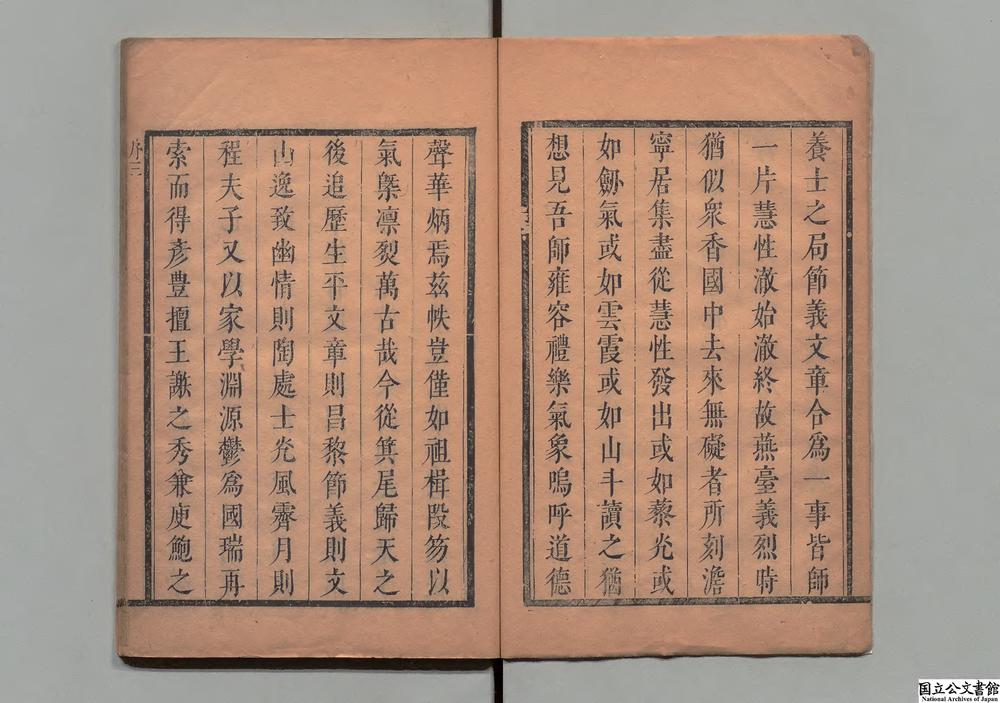 養士之局節義文章合爲一事皆師
一片慧性澈始澈終故燕臺義烈時
猶似衆香國中去來無礙者所刻澹
寧居集盡從慧性發出或如藜光或
如劒氣或如雲霞或如山斗讀之猶
想見吾師雍容禮樂氣象嗚呼道德
聲華炳焉茲帙豈僅如祖楫段笏以
氣槩凛烮萬古哉今從箕尾歸天之
後追歷生平文章則昌黎節義則文
山逸致幽情則陶處士光風霽月則
程夫子又以家學淵源欝爲國瑞再
索而得彦豊擅王謝之秀兼庾鮑之
序
三
国立公文書館
National Archives of Japan